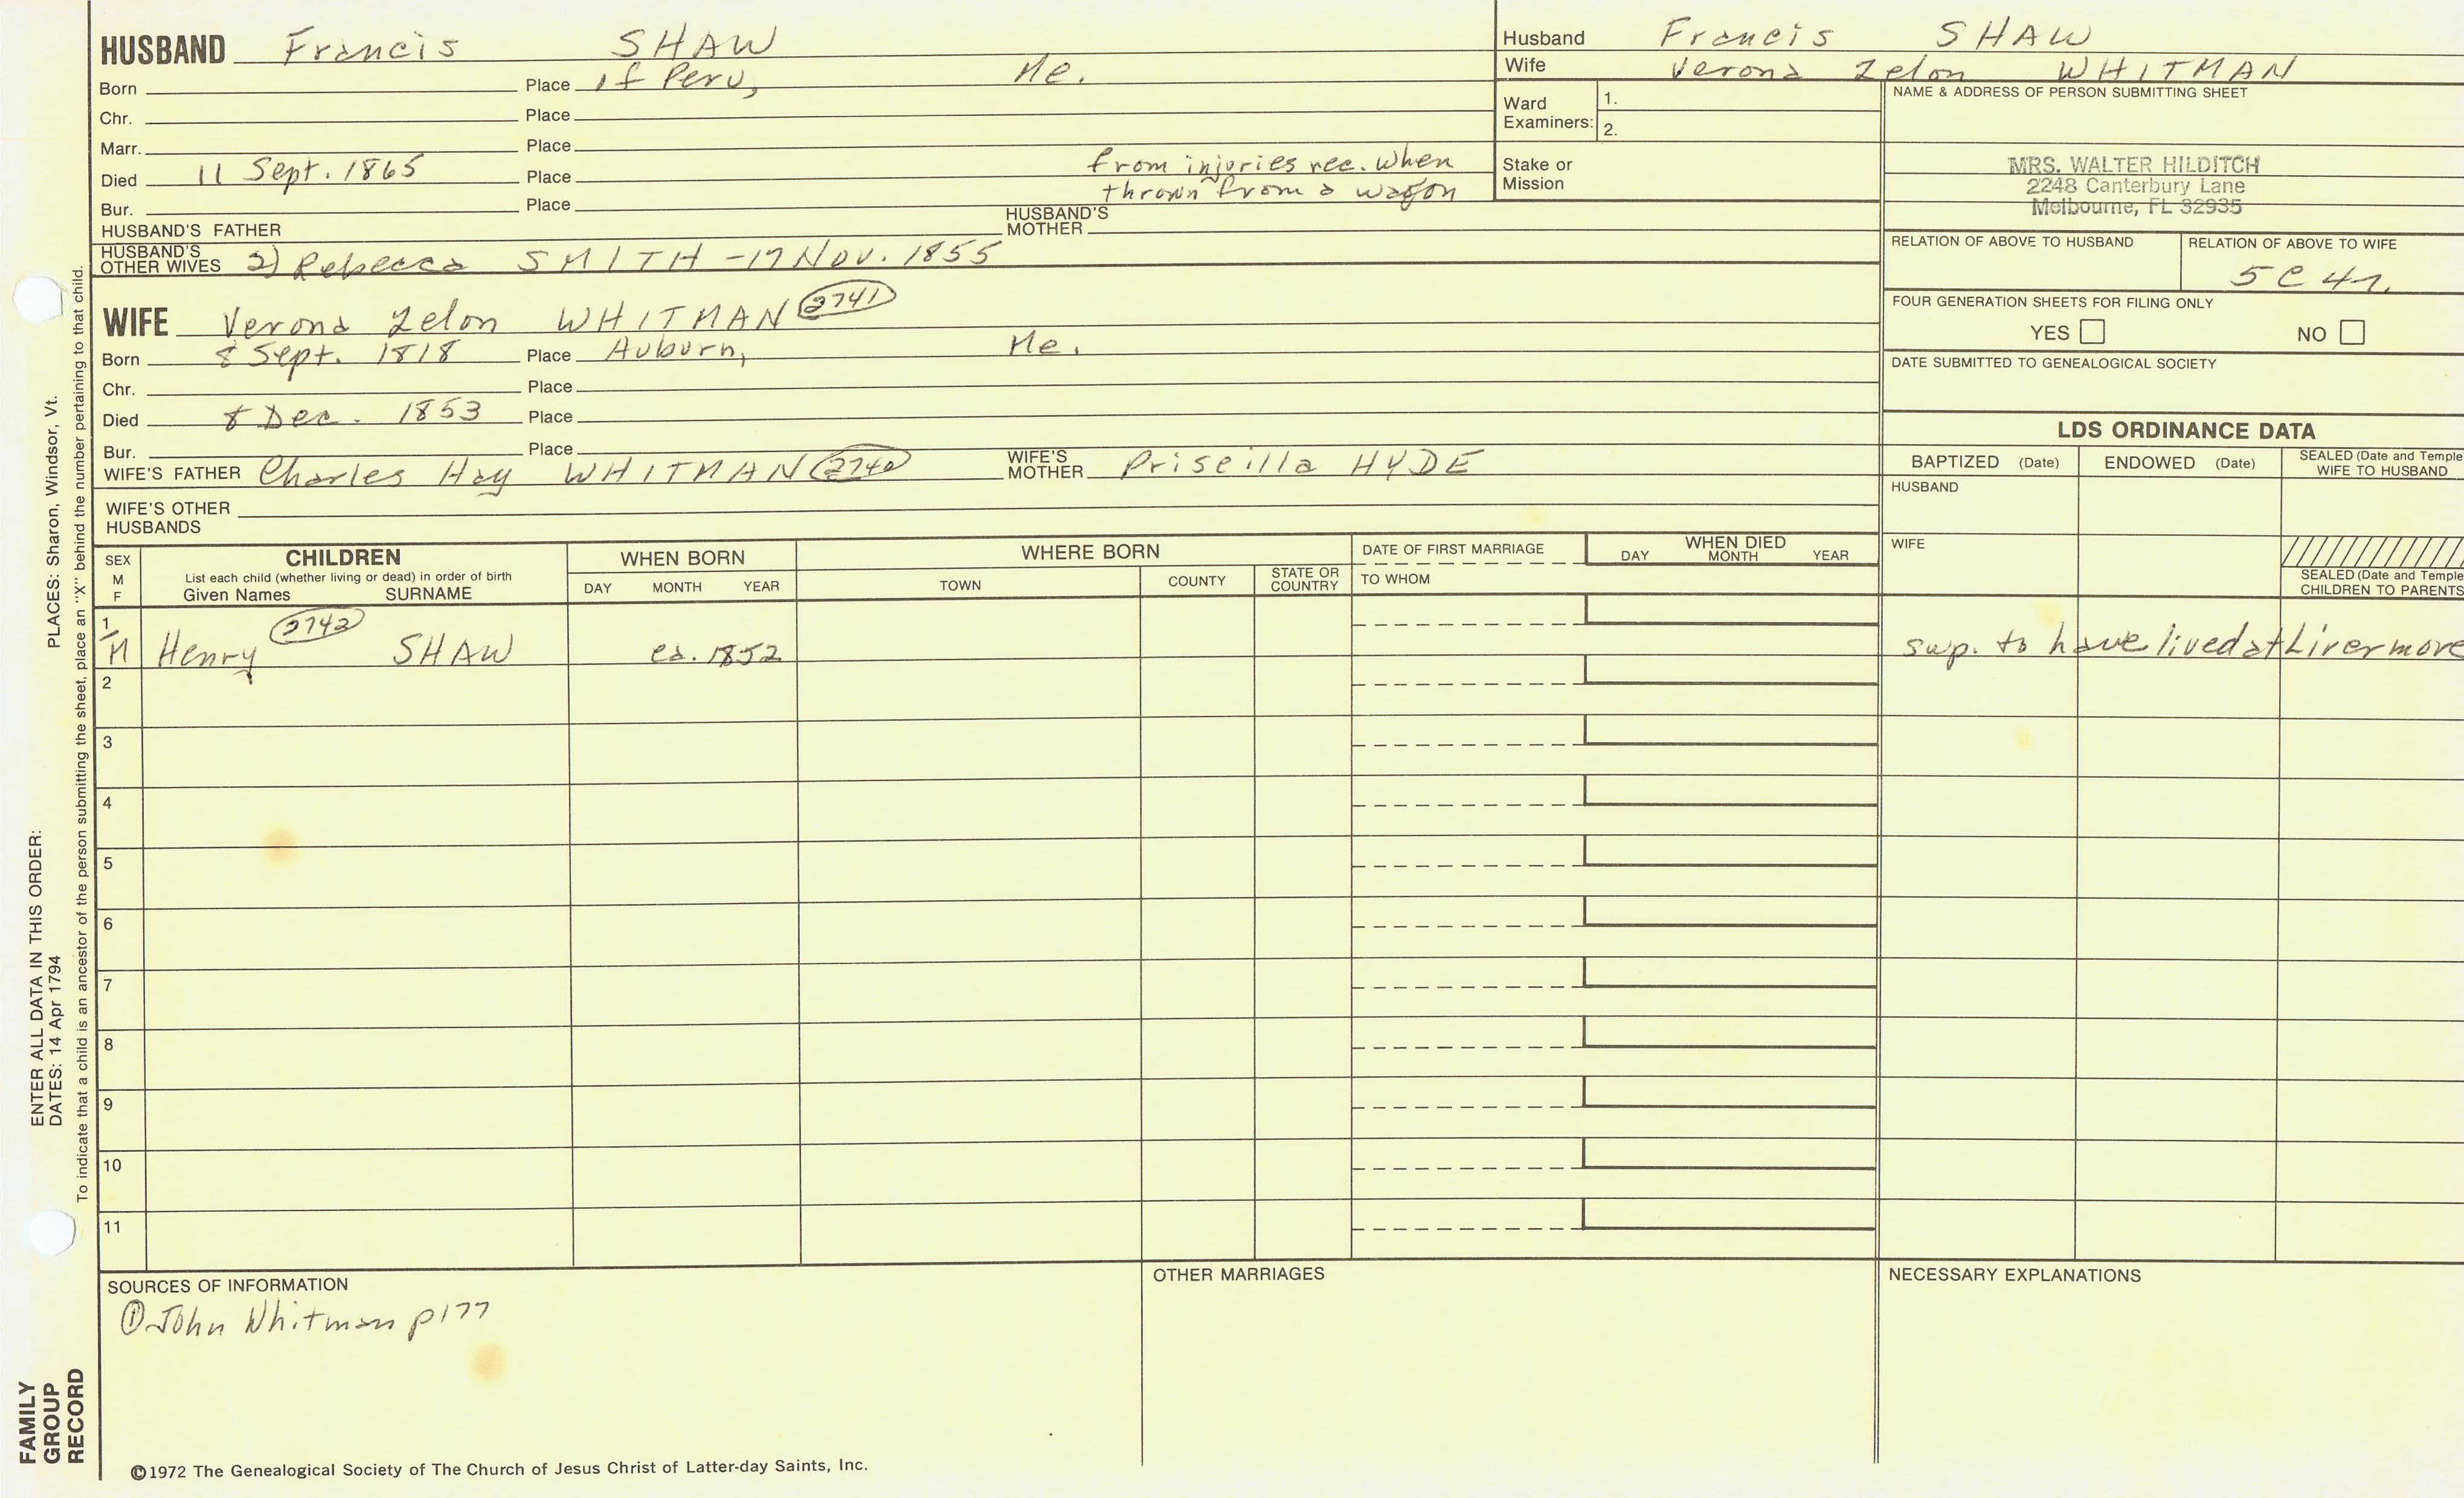 HUSBAND Francis SHAW
Born Place of Peru, Me.
Chr. Place
Marr. Place
Died 11 Sept. 1865 Place from injuries rec. when
thrown from a wagon
Bur. Place
HUSBAND'S FATHER HUSBAND'S MOTHER
HUSBAND'S OTHER WIVES 2) Rebecca SMITH - 17 Nov. 1855
WIFE Verona Zelon WHITMAN 2741
Born 8 Sept. 1818 Place Auburn, Me.
Chr. Place
Died 8 Dec. 1853 Place
Bur. Place
WIFE'S FATHER Charles Hay WHITMAN 2740 WIFE'S MOTHER Priscilla HYDE
WIFE'S OTHER HUSBANDS
Husband Francis SHAW
Wife Verona Zelon WHITMAN
Ward Examiners: 1.
2.
Stake or Mission
NAME & ADDRESS OF PERSON SUBMITTING SHEET
MRS. WALTER HILDITCH
2248 Canterbury Lane
Melbourne, FL 32935
RELATION OF ABOVE TO HUSBAND RELATION OF ABOVE TO WIFE
5C4r.
FOUR GENERATION SHEETS FOR FILING ONLY
YES NO
DATE SUBMITTED TO GENEALOGICAL SOCIETY
LDS ORDINANCE DATA
BAPTIZED (Date) ENDOWED (Date) SEALED (Date and Temple) WIFE TO HUSBAND
HUSBAND
WIFE
SEALED (Date and Temple) CHILDREN TO PARENTS
SEX M F CHILDREN WHEN BORN WHERE BORN DATE OF FIRST MARRIAGE WHEN DIED
List each child (whether living or dead) in order of birth
Given Names SURNAME DAY MONTH YEAR TOWN COUNTY STATE OR COUNTRY TO WHOM DAY MONTH YEAR
1 M Henry 2742 SHAW ca. 1852 sup. to have lived at Livermore
2
3
4
5
6
7
8
9
10
11
SOURCES OF INFORMATION OTHER MARRIAGES NECESSARY EXPLANATIONS
① John Whitman p177
©1972 The Genealogical Society of The Church of Jesus Christ of Latter-day Saints, Inc.
FAMILY GROUP RECORD
ENTER ALL DATA IN THIS ORDER:
DATES: 14 Apr 1794 PLACES: Sharon, Windsor, Vt.
To indicate that a child is an ancestor of the person submitting the sheet, place an "X" behind the number pertaining to that child.